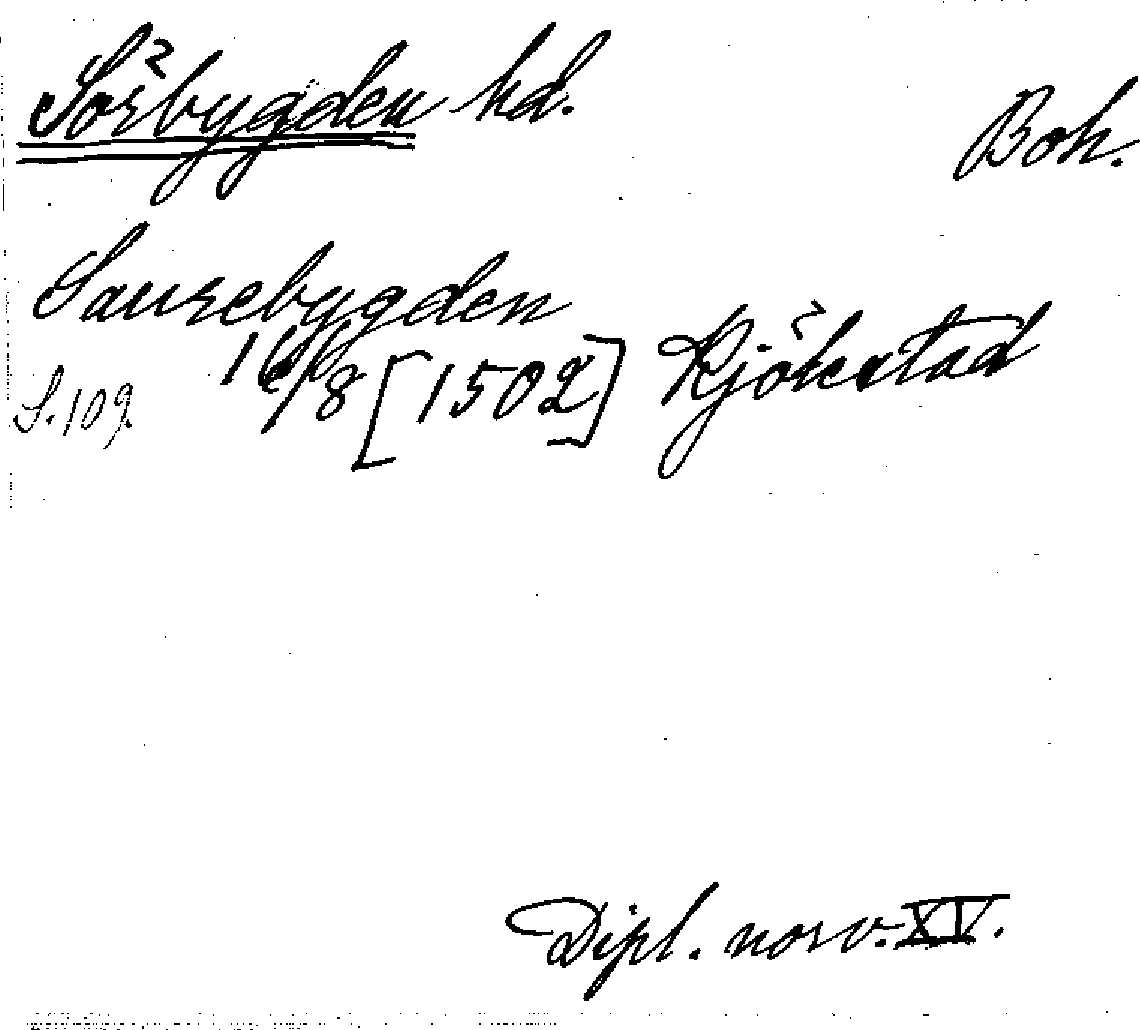 Sörbygden hd.
Boh.
Saurebygden
16/8 [1502] Kjökstad
S. 109.
Dipl. norv. XV.